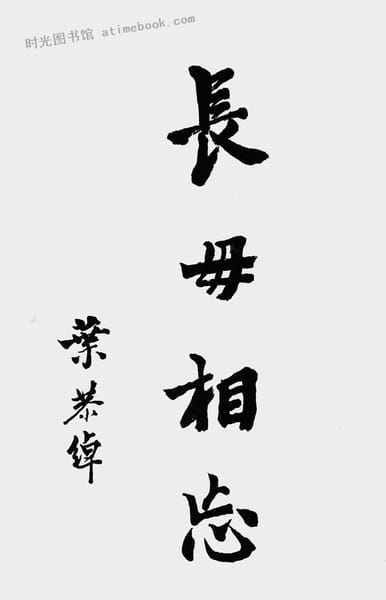 时光图书馆 atimebook.com
長毋相忘
葉恭綽